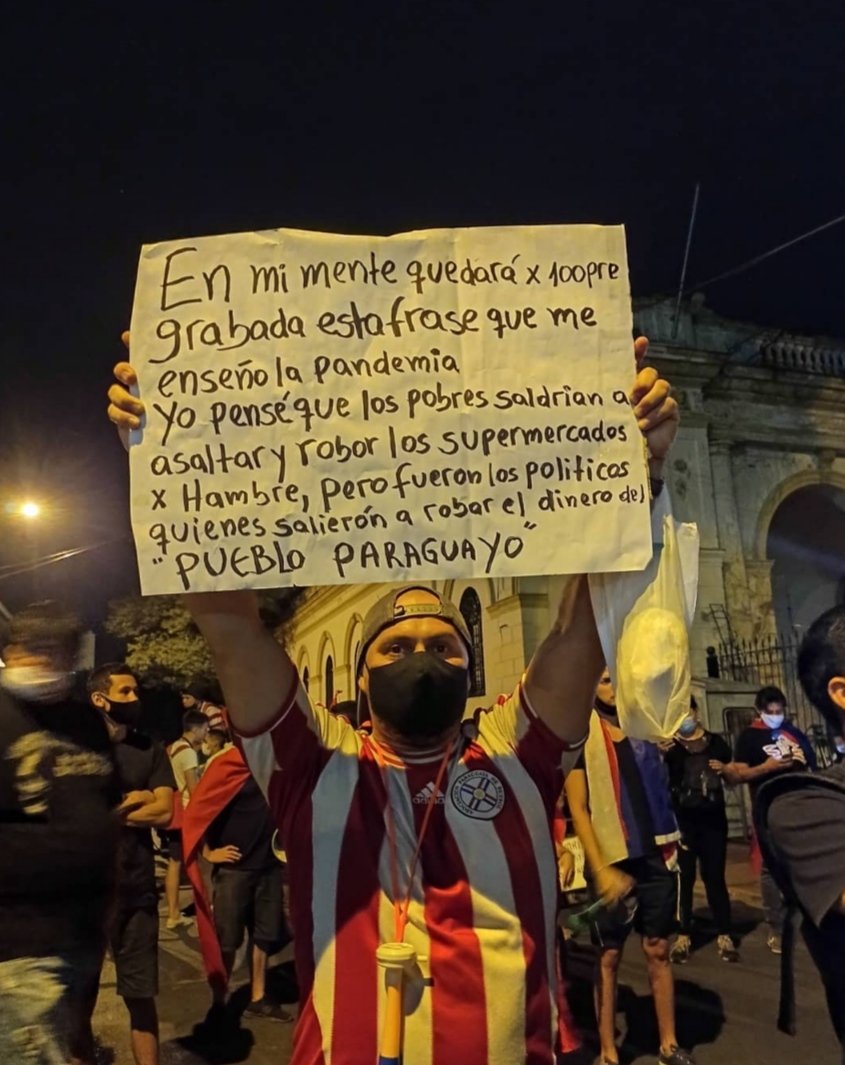 En mi mente quedará x 100pre
grabada esta frase que me
enseño la pandemia
Yo pensé que los pobres saldrian a
asaltar y robar los supermercados
x Hambre, pero fueron los politicos
quienes salierón a robar el dinero del
"PUEBLO PARAGUAYO"
adidas